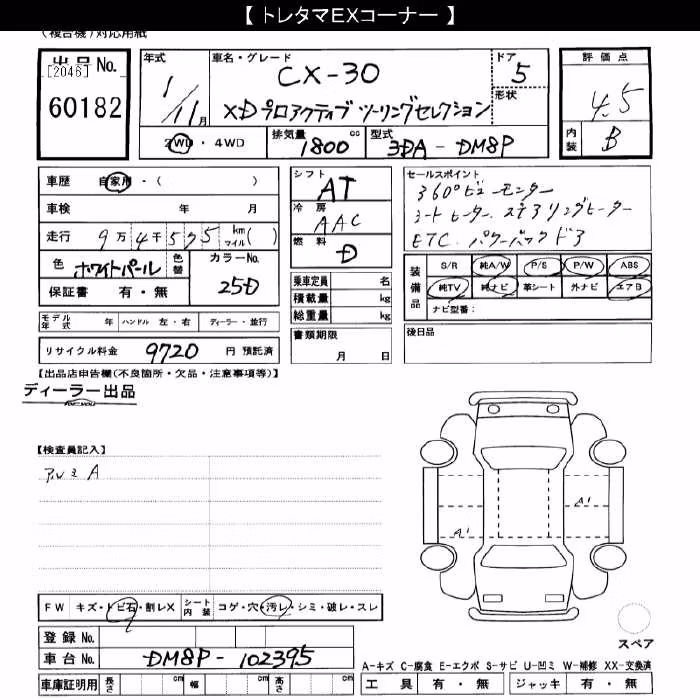 【 トレタマEXコーナー 】
(複合機)対応用紙
出品 No.
[2046]
60182
年式
1/11月
車名・グレード
CX-30
XDプロアクティブ ツーリングセレクション
ドア
5
形状
評価点
4.5
内装
B
2WD・4WD
排気量
1800 cc
型式
3DA-DM8P
車歴 自家用・( )
車検 年 月
走行 9万4千575 km マイル( )
色 ホワイトパール 色替
カラーNo.
25D
保証書 有・無
モデル年式 年 ハンドル 左・右 ディーラー・並行
リサイクル料金 9720 円 預託済
シフト
AT
冷房
AAC
燃料
D
乗車定員 名
積載量 kg
総重量 kg
書類期限
月 日
セールスポイント
360°ビューモニター
シートヒーター. ステアリングヒーター
ETC. パワーバックドア
装備品
S/R 純A/W P/S P/W ABS
純TV 純ナビ 革シート 外ナビ エアB
ナビ型番:
後日品
【出品店申告欄(不良箇所・欠品・注意事項等)】
ディーラー出品
【検査員記入】
アルミ A
A1
A1
FW キズ・トビ石・割レX シート内装 コゲ・穴・汚レ・シミ・破レ・スレ
登録 No.
車台 No. DM8P-102395
車庫証明用 長さ cm 幅 cm 高さ cm
スペア
A-キズ C-腐食 E-エクボ S-サビ U-凹ミ W-補修 XX-交換済
工具 有・無 ジャッキ 有・無